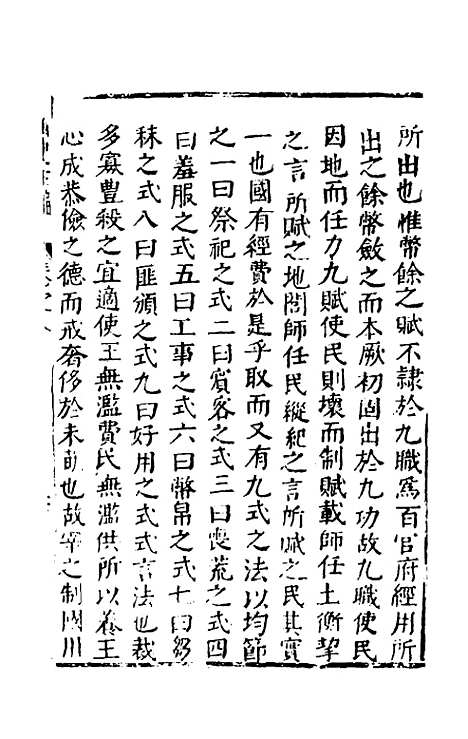 所出也惟幣餘之賦不隷於九職爲百官府經用所
出之餘幣斂之而本厥初固出於九功故九職使民
因地而任力九賦使民則壤而制賦載師任土衡挈
之言所賦之地閭師任民縱紀之言所賦之民其實
一也國有經費於是乎取而又有九式之法以均節
之一曰祭祀之式二曰賓客之式三曰喪荒之式四
曰羞服之式五曰工事之式六曰幣帛之式七曰芻
秣之式八曰匪頒之式九曰好用之式式言法也裁
多寡豊殺之宜適使王無濫費民無濫供所以養王
心成恭儉之德而戒奢侈於未萌也故宰之制國用